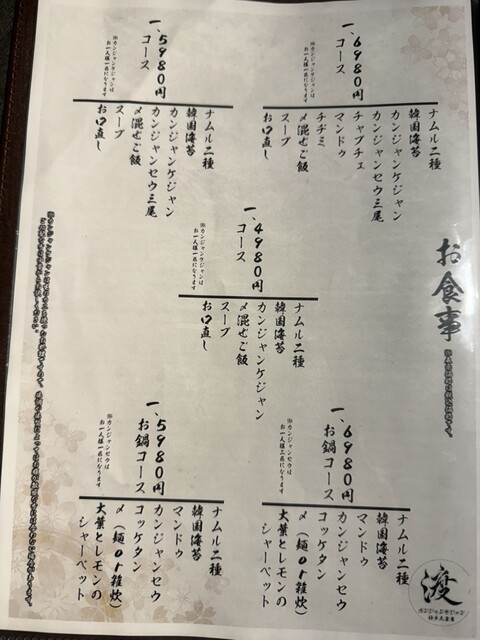 お食事
一、6980円
コース
ナムル二種
韓国海苔
カンジャンケジャン
カンジャンセウ三尾
チャプチェ
マンドゥ
チヂミ
〆混ぜご飯
スープ
お口直し
一、5980円
コース
※カンジャンケジャンは
お一人様一匹になります
ナムル二種
韓国海苔
カンジャンケジャン
カンジャンセウ三尾
〆混ぜご飯
スープ
お口直し
一、4980円
コース
※カンジャンケジャンは
お一人様一匹になります
ナムル二種
韓国海苔
カンジャンケジャン
〆混ぜご飯
スープ
お口直し
一、6980円
お鍋コース
ナムル二種
韓国海苔
マンドゥ
カンジャンセウ
コッケタン
〆（麺or雑炊）
大葉とレモンの
シャーベット
一、5980円
お鍋コース
ナムル二種
韓国海苔
マンドゥ
カンジャンセウ
コッケタン
〆（麺or雑炊）
大葉とレモンの
シャーベット
渡
カンジャンケジャン